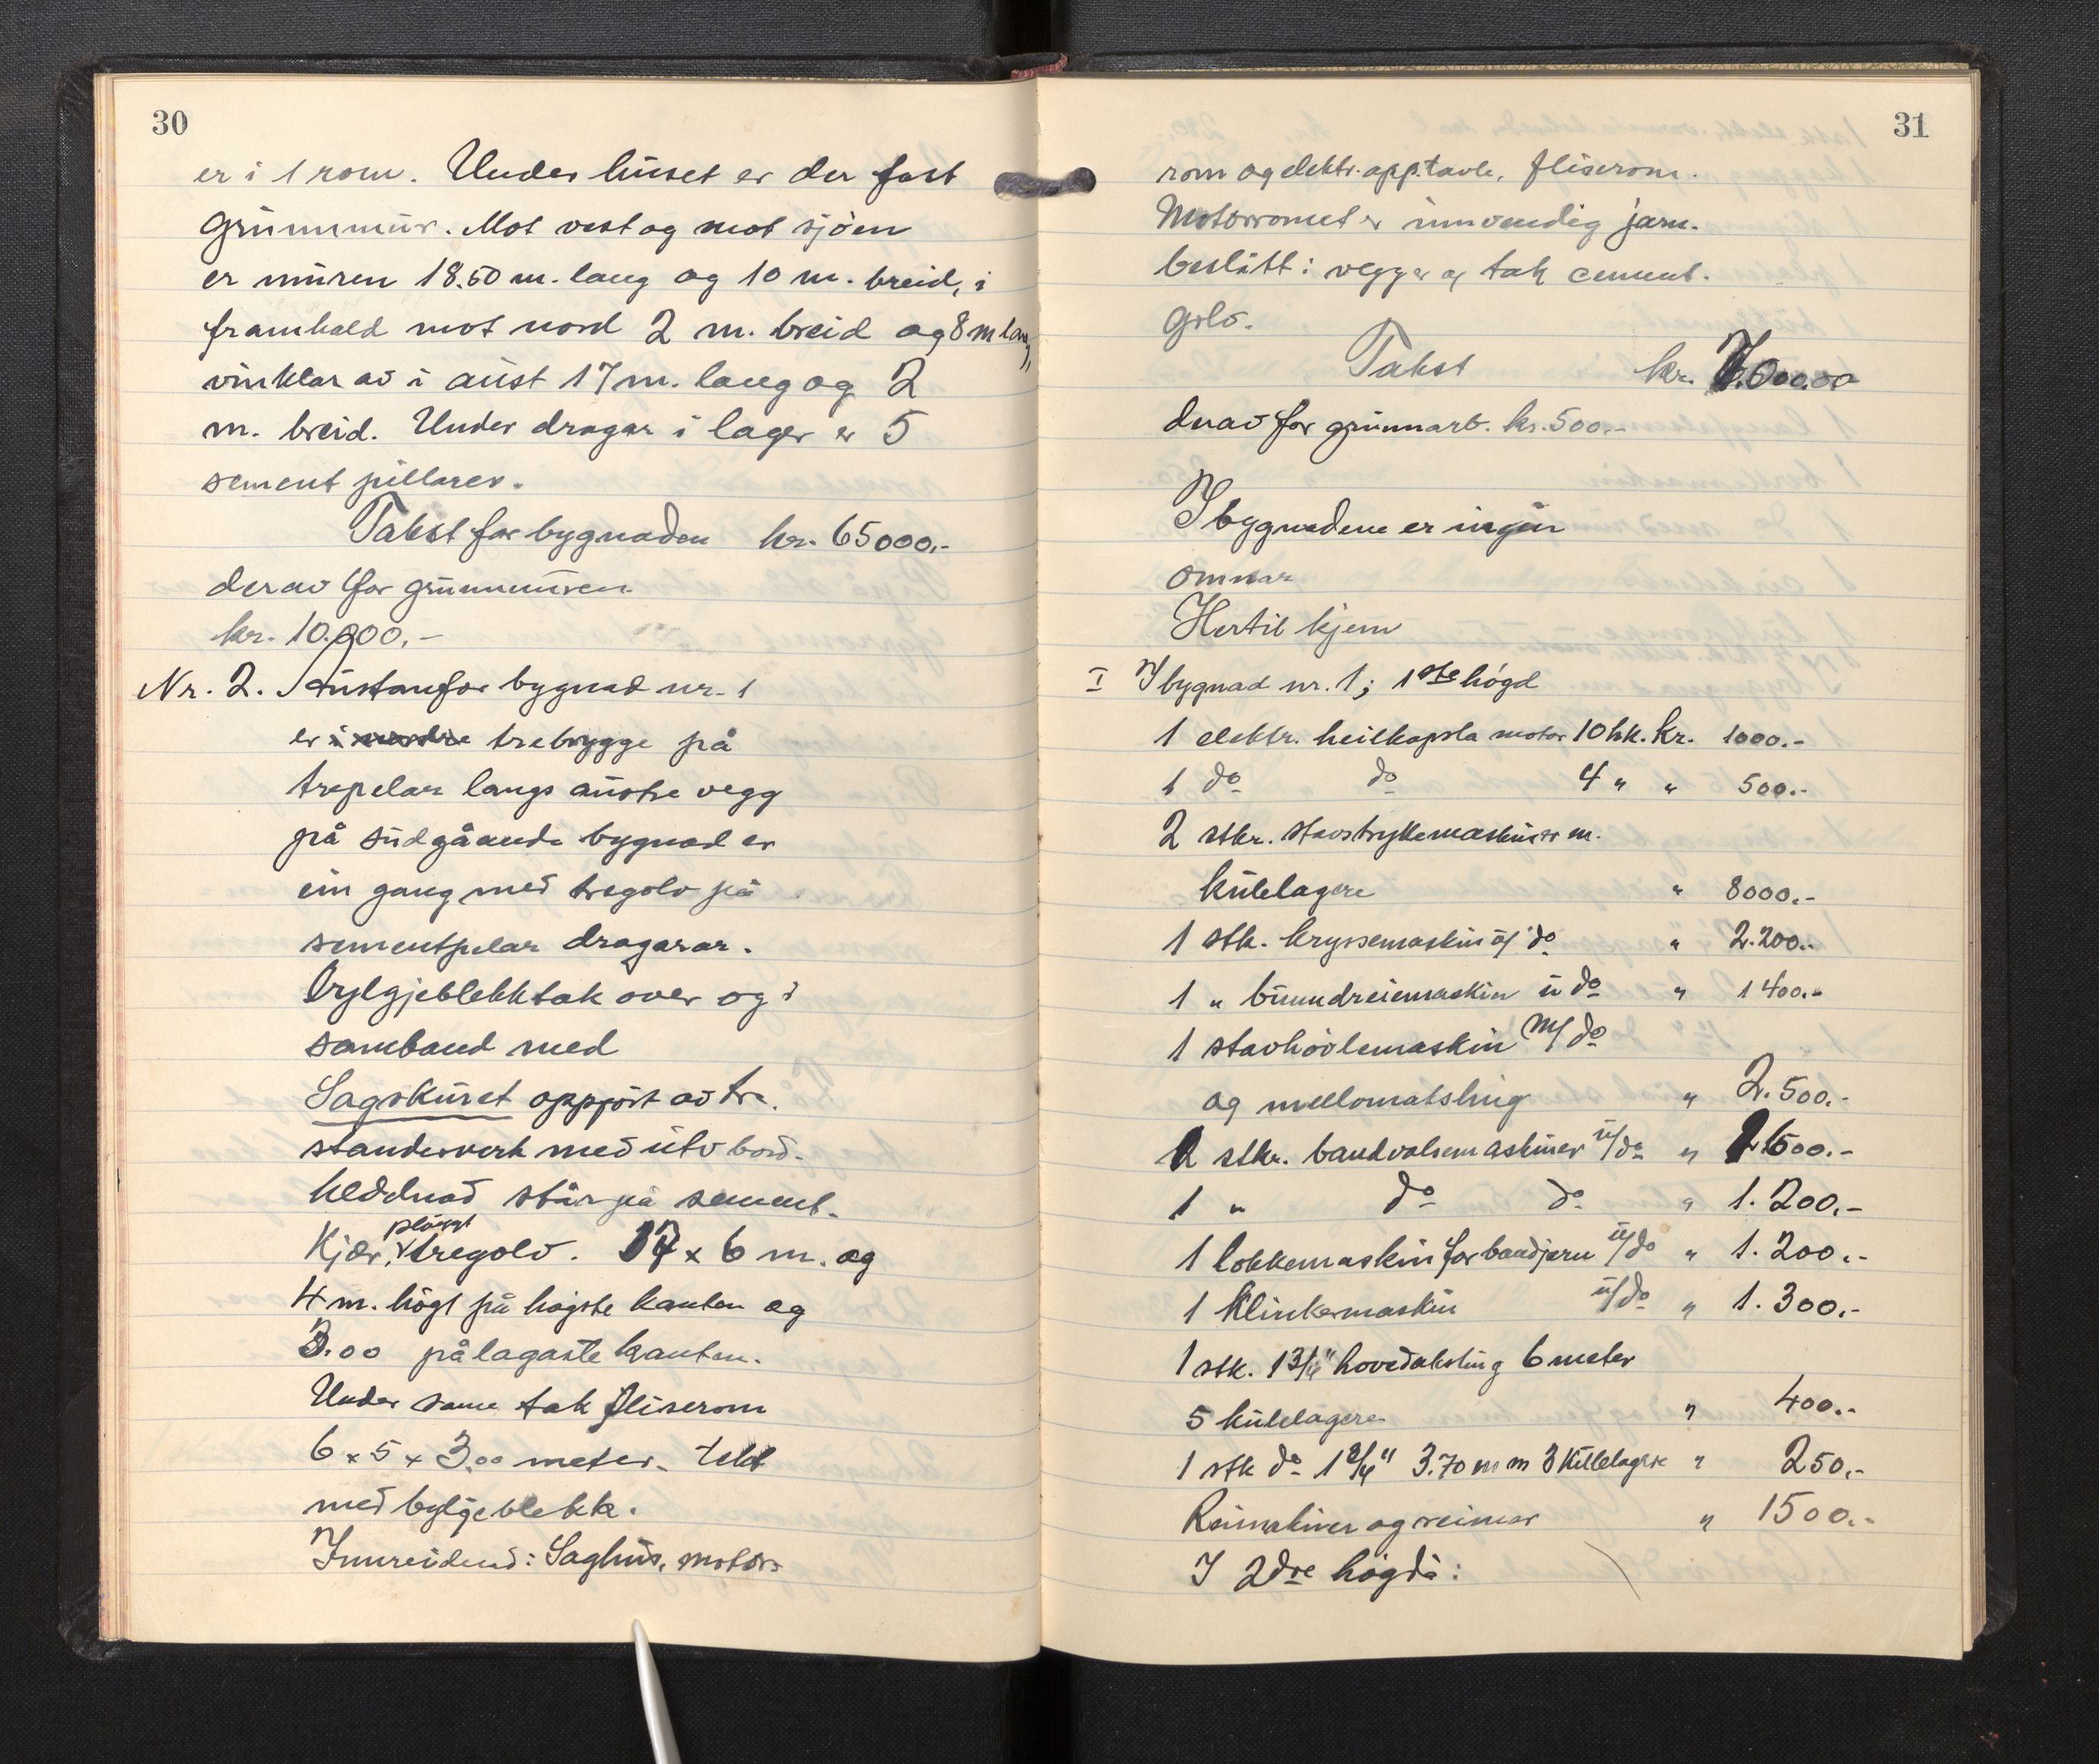 30
er i 1 rom. Under huset er der fast
grunnmur. Mot vest og mot sjøen
er muren 18.50 m. lang og 10 m. breid, i
framhald mot nord 2 m. breid og 8 m lang,
vinklar av i aust 17 m. lang og 2
m. breid. Under dragar i lager er 5
sement pillarer.
Takst for bygnaden kr. 65000.-
derav for grunnmuren
kr. 10.000.-
Nr. 2. Austanfor bygnad nr. 1
er trebrygge på
trepelar langs austre vegg
på sudgåande bygnad er
ein gang med tregolv på
sementpelar dragarar.
Bylgjeblekktak over og i
samband med
Sagskuret oppført av tre.
standerverk med utv bord-
kledning står på sement.
Kjær, pløgt tregolv. 17 x 6 m. og
4 m. høgt på høgste kanten og
3.00 på lagaste kanten.
Under same tak fliserom
6 x 5 x 3.00 meter. tekt
med bylgjeblekk.
Innreidnad: Saghus, motor-
31
rom og elektr. app.tavle, fliserom.
Motorromet er innvendig jarn-
beslått i vegger og tak cement-
golv.
Takst kr. 7.000.00
derav for grunnarb. kr. 500.-
I bygnadene er ingen
omnar
Hertil kjem
I I bygnad nr. 1; 1ste høgd
1 elektr. heilkapsla motor 10 hk. kr. 1000.-
1 do do 4 " " 500.-
2 stkr. stavstrykemaskiner m.
kulelagere " 8000.-
1 stk. kryssemaskin u/ do " 2.200.-
1 " bunndreiemaskin u do " 1400.-
1 stavhøvlemaskin m/ do
og mellomaksling " 2.500.-
2 stkr. bandvalsemaskiner u/do " 2.600.-
1 " do do " 1.200.-
1 lokkemaskin for bandjern u/do " 1.200.-
1 Klinkemaskin u/do " 1.300.-
1 stk. 1 3/4" hovedaksling 6 meter
5 kulelagere " 400.-
1 stk do 1 3/4" 3.70 m m 3 kulelagere " 250.-
Reimskiver og reimar " 1500.-
I 2dre høgda: